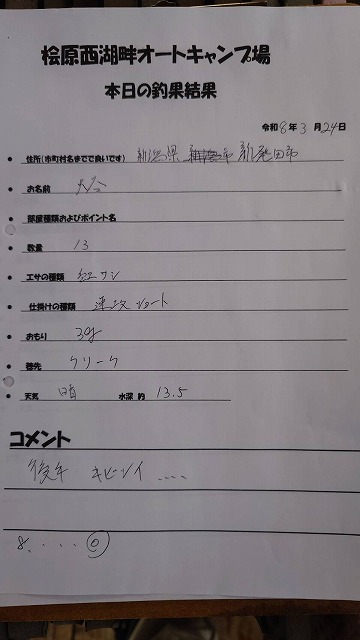 桧原西湖畔オートキャンプ場
本日の釣果結果
令和 8 年 3 月 24 日
住所(市町村名までで良いです) 新潟県 新発田市
お名前 大谷
部屋種類およびポイント名
数量 13
エサの種類 紅サシ
仕掛けの種類 速攻ショート
おもり 3g
穂先 クリーク
天気 晴 水深 約 13.5
コメント
後半 キビシイ ....
8. . . . .